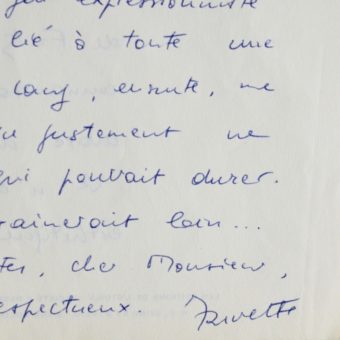 expressionniste
lié à toute une
Lang, ensuite, ne
justement ne
qui pouvait durer.
rainerait loin...
ter, cher Monsieur,
espectueux. Rivette